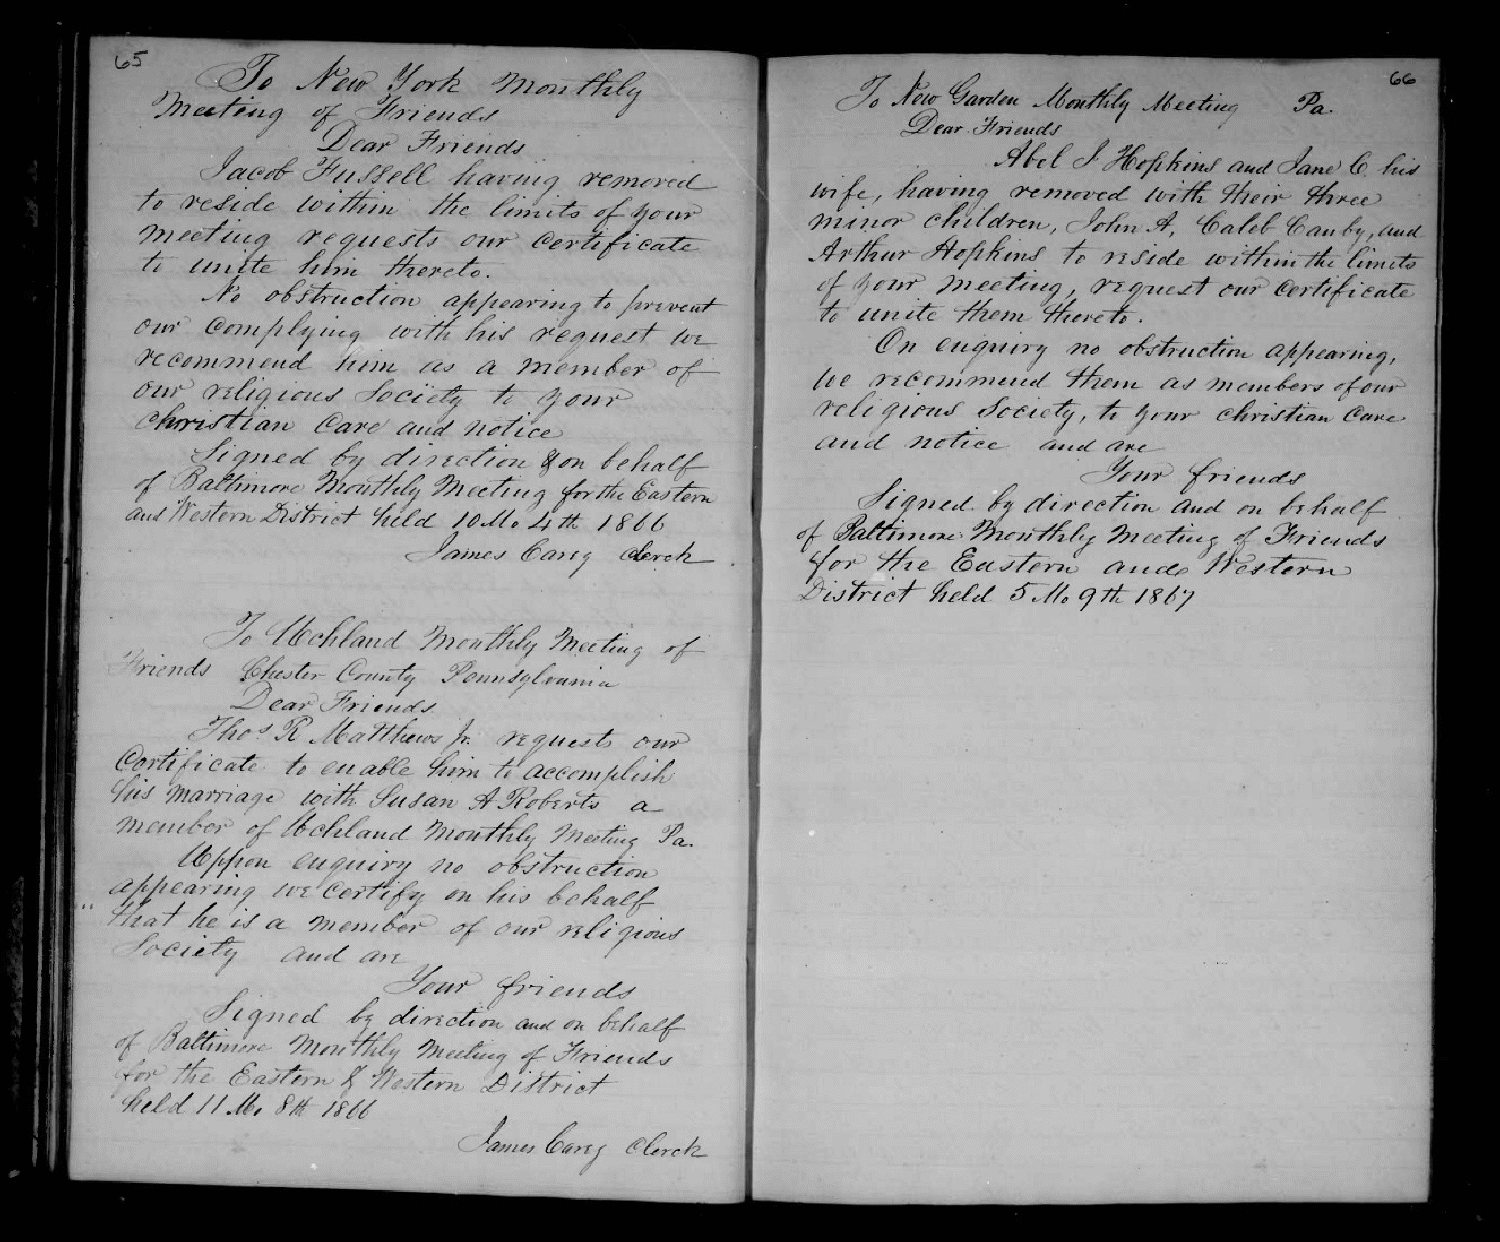 65
To New York Monthly
Meeting of Friends
Dear Friends
Jacob Fussell having removed
to reside within the limits of your
meeting requests our certificate
to unite him thereto.
No obstruction appearing to prevent
our complying with his request we
recommend him as a member of
our religious Society to your
christian care and notice
Signed by direction & on behalf
of Baltimore Monthly Meeting for the Eastern
and Western District held 10 Mo 4th 1866
James Carey Clerk
To Uchland Monthly Meeting of
Friends Chester County Pennsylvania
Dear Friends
Thos R Matthews Jr. requests our
Certificate to enable him to accomplish
his marriage with Susan A Roberts a
member of Uchland Monthly Meeting Pa.
Uppon enquiry no obstruction
appearing we certify on his behalf
that he is a member of our religious
Society and are
Your friends
Signed by direction and on behalf
of Baltimore Monthly Meeting of Friends
for the Eastern & Western District
held 11 Mo 8th 1866
James Carey Clerk
66
To New Garden Monthly Meeting Pa.
Dear Friends
Abel J Hopkins and Jane C. his
wife, having removed with their three
minor children, John A, Caleb Canby, and
Arthur Hopkins to reside within the limits
of your meeting, request our certificate
to unite them thereto.
On enquiry no obstruction appearing,
we recommend them as members of our
religious Society, to your christian care
and notice and are
Your friends
Signed by direction and on behalf
of Baltimore Monthly Meeting of Friends
for the Eastern and Western
District held 5 Mo 9th 1867